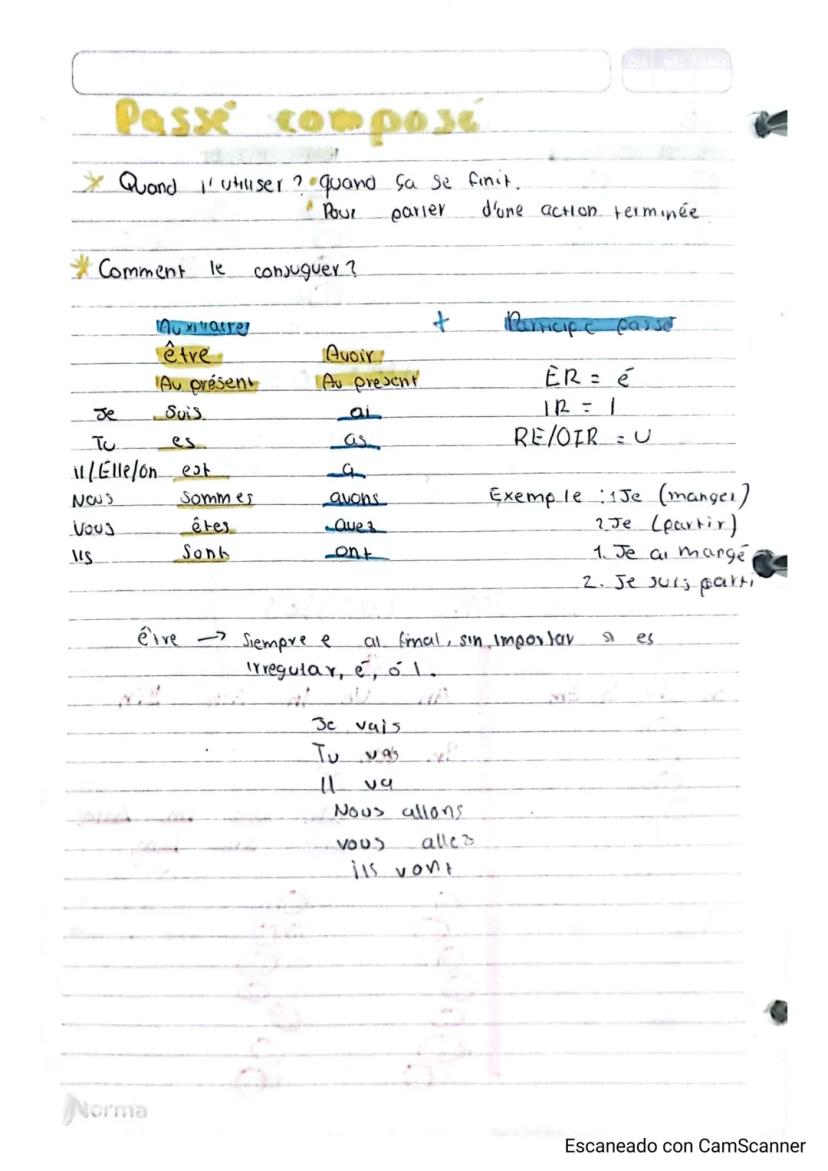 DIA MES AÑO
Passé composé
* Quand l'utiliser? • quand ça se finit.
• Pour parler d'une action terminée
* Comment le conjuguer?
Auxiliaires + Participe passé
être Avoir
Au présent Au present
ER = é
Je suis ai
IR = I
Tu es as
RE/OIR = U
Il/Elle/on est a
Nous sommes avons
Exemple : 1 Je (manger)
Vous êtes avez
2. Je (partir)
Ils sont ont
1. Je ai mangé
2. Je suis parti
être → Siempre e al final, sin importar si es
irregular, é, ó I.
Je vais
Tu vas
Il va
Nous allons
vous allez
ils vont
Norma
Escaneado con CamScanner